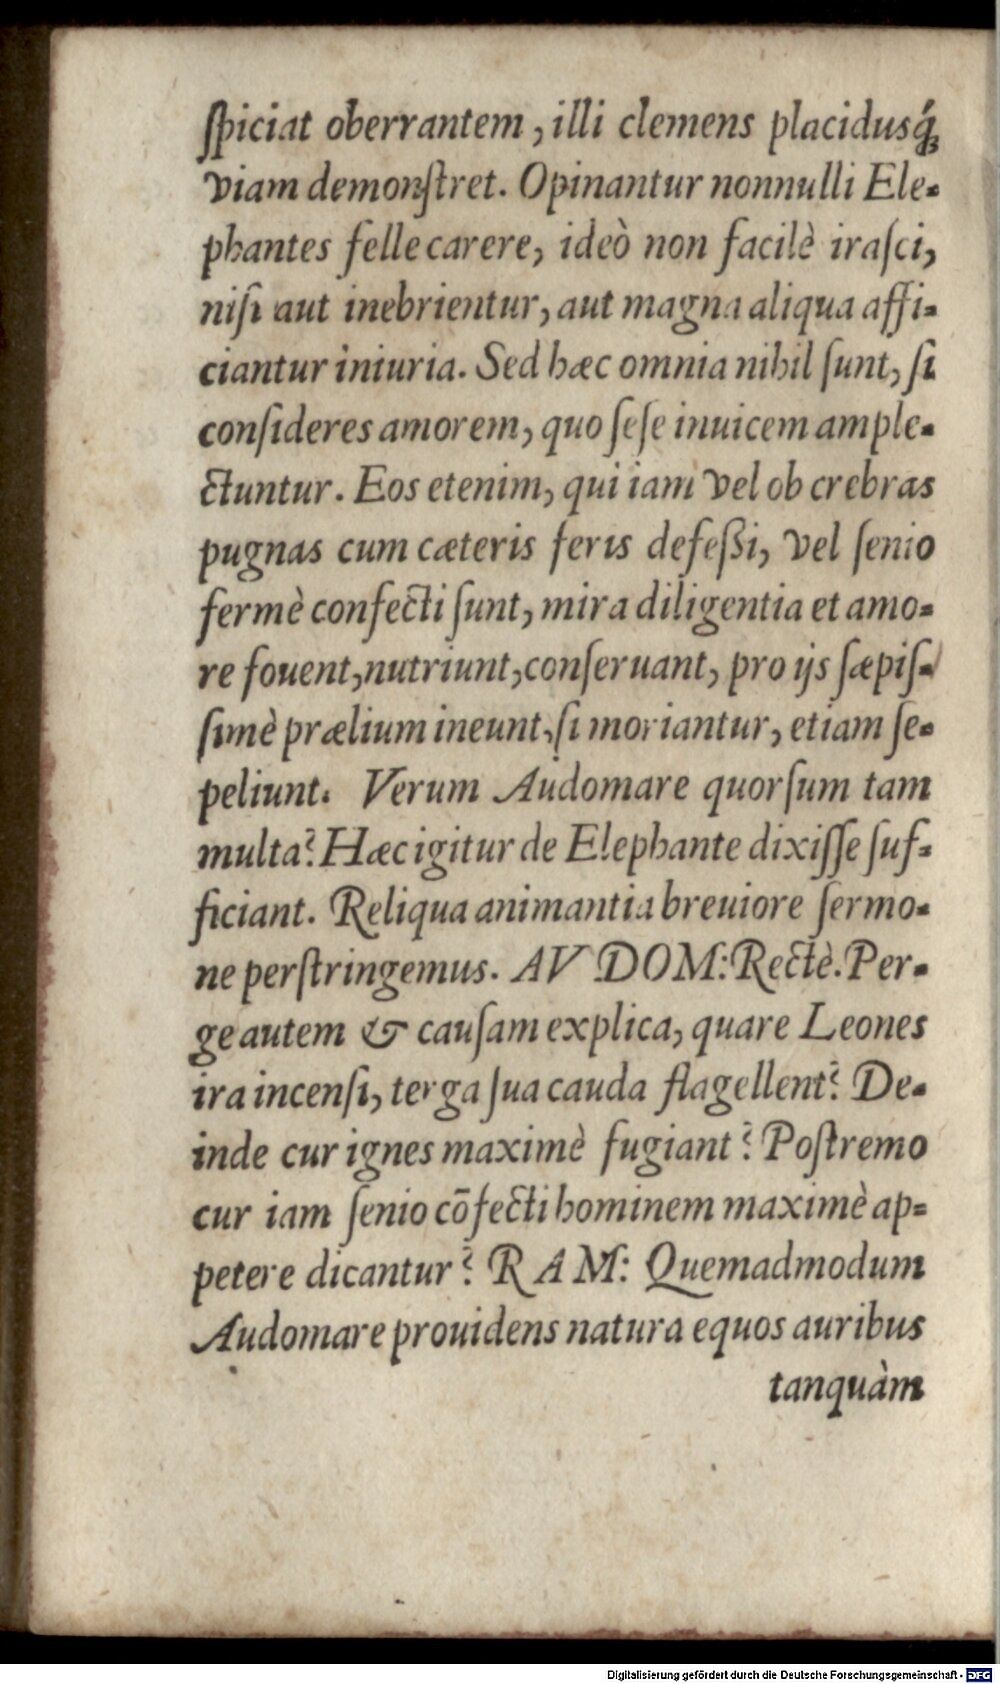 ſpiciat oberrantem, illi clemens placidusq́;
viam demonſtret. Opinantur nonnulli Ele-
phantes felle carere, ideò non facilè iraſci,
niſi aut inebrientur, aut magna aliqua affi-
ciantur iniuria. Sed hæc omnia nihil ſunt, ſi
conſideres amorem, quo ſeſe inuicem ample-
ctuntur. Eos etenim, qui iam vel ob crebras
pugnas cum cæteris feris defeßi, vel ſenio
fermè confecti ſunt, mira diligentia et amo-
re fouent, nutriunt, conſeruant, pro ijs ſæpiſ-
ſimè prælium ineunt, ſi moriantur, etiam ſe-
peliunt. Verum Audomare quorſum tam
multa? Hæc igitur de Elephante dixiſſe ſuf-
ficiant. Reliqua animantia breuiore ſermo-
ne perſtringemus. AVDOM: Rectè. Per-
ge autem & cauſam explica, quare Leones
ira incenſi, terga ſua cauda flagellent? De-
inde cur ignes maximè fugiant? Poſtremo
cur iam ſenio cōfecti hominem maximè ap-
petere dicantur? RAM: Quemadmodum
Audomare prouidens natura equos auribus
tanquàm
Digitalisierung gefördert durch die Deutsche Forschungsgemeinschaft - DFG